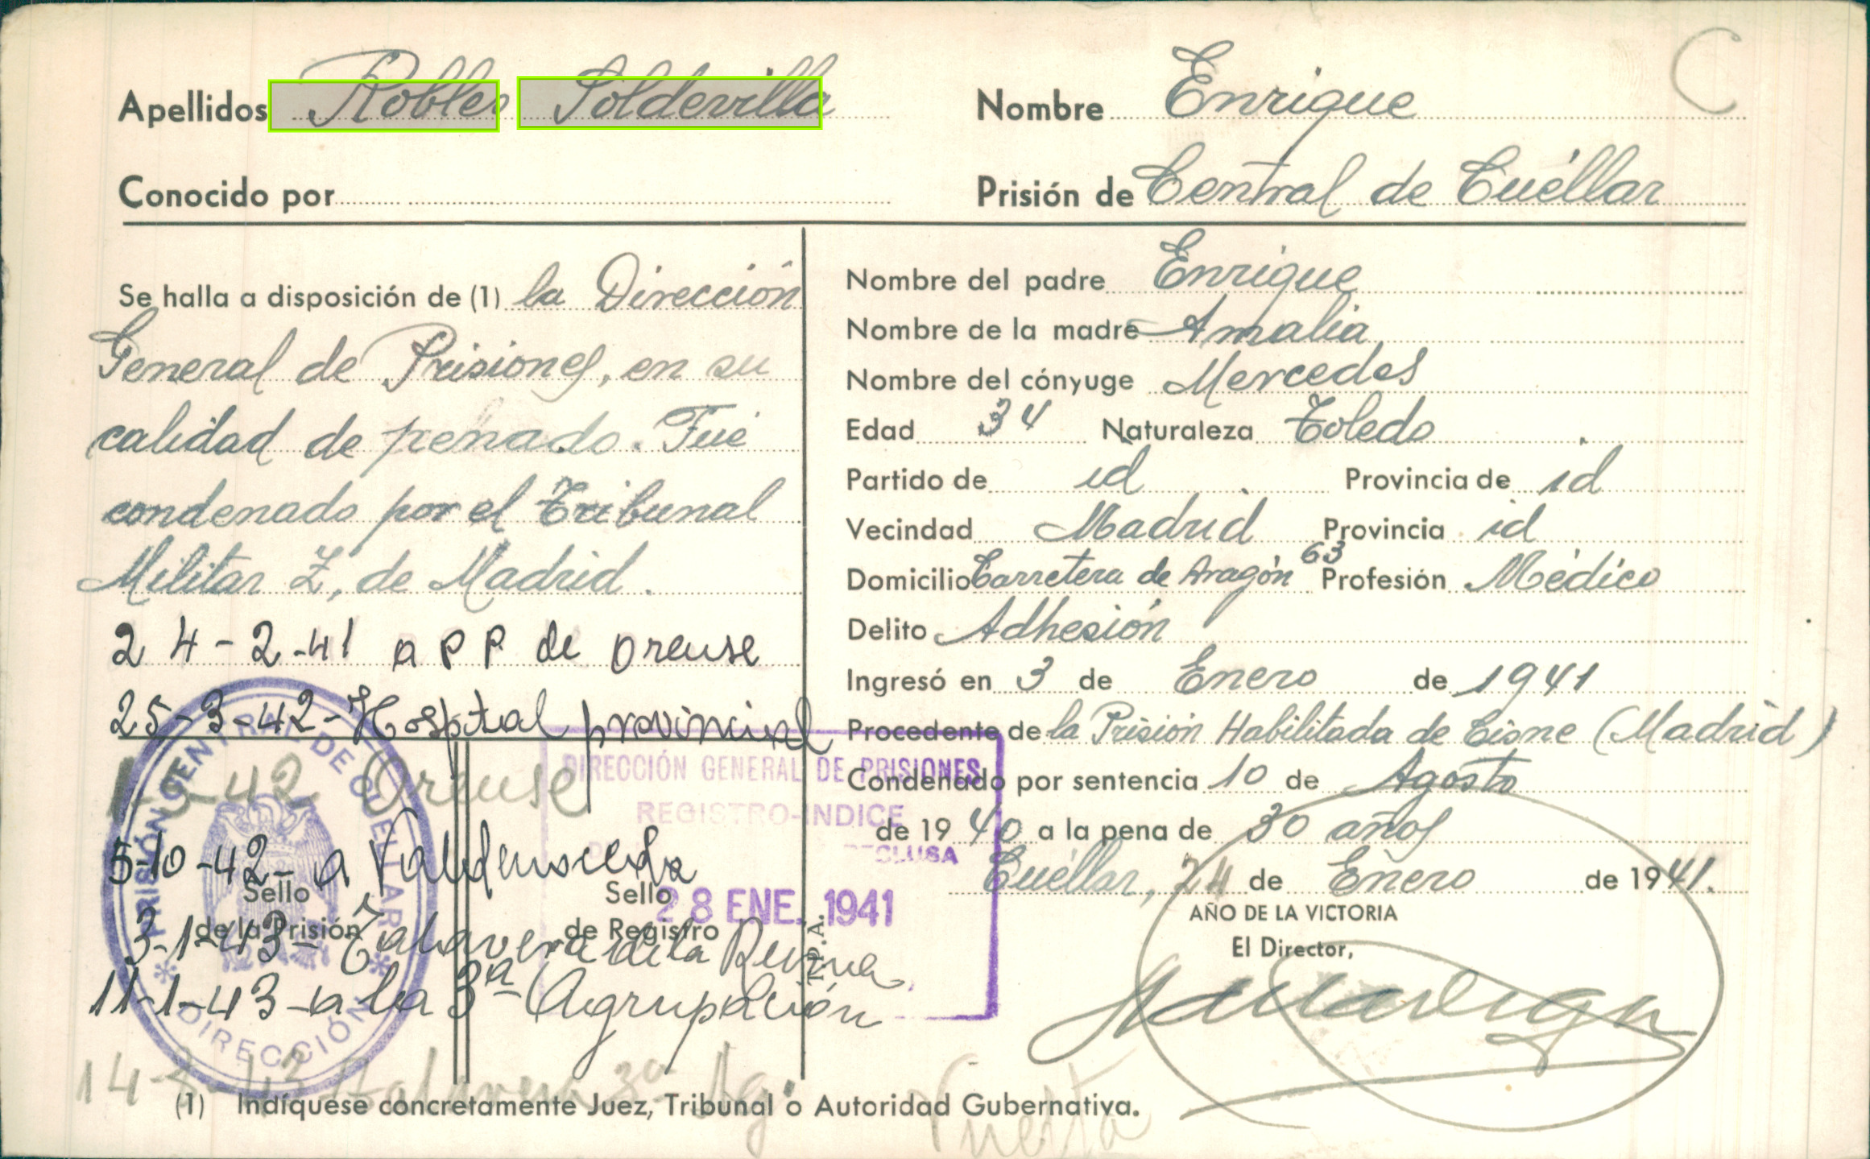 C
Apellidos Robles Soldevilla Nombre Enrique
Conocido por Prisión de Central de Cuéllar
Se halla a disposición de (1) la Dirección
General de Prisiones, en su
calidad de penado. Fué
condenado por el Tribunal
Militar Z, de Madrid.
24-2-41 a P P de Orense
25-3-42-Hospital provincial
1-5-42 Orense
5-10-42- a Valdenoceda
3-1-43- Talavera de la Reina
11-1-43-a la 3ª Agrupación
14- -43 Talavera 3ª Ag.
Nombre del padre Enrique
Nombre de la madre Amalia
Nombre del cónyuge Mercedes
Edad 34 Naturaleza Toledo
Partido de id Provincia de id
Vecindad Madrid Provincia id
Domicilio Carretera de Aragón 63 Profesión Médico
Delito Adhesión
Ingresó en 3 de Enero de 1941
Procedente de la Prisión Habilitada de Cisne (Madrid)
Condenado por sentencia 10 de Agosto
de 1940 a la pena de 30 años
Cuéllar, 24 de Enero de 1941.
AÑO DE LA VICTORIA
El Director,
Sello
de la Prisión
PRISIÓN CENTRAL DE CUELLAR
* DIRECCIÓN *
Sello
de Registro
DIRECCIÓN GENERAL DE PRISIONES
REGISTRO-INDICE
28 ENE. 1941
I.P.A.
(1) Indíquese concretamente Juez, Tribunal o Autoridad Gubernativa.